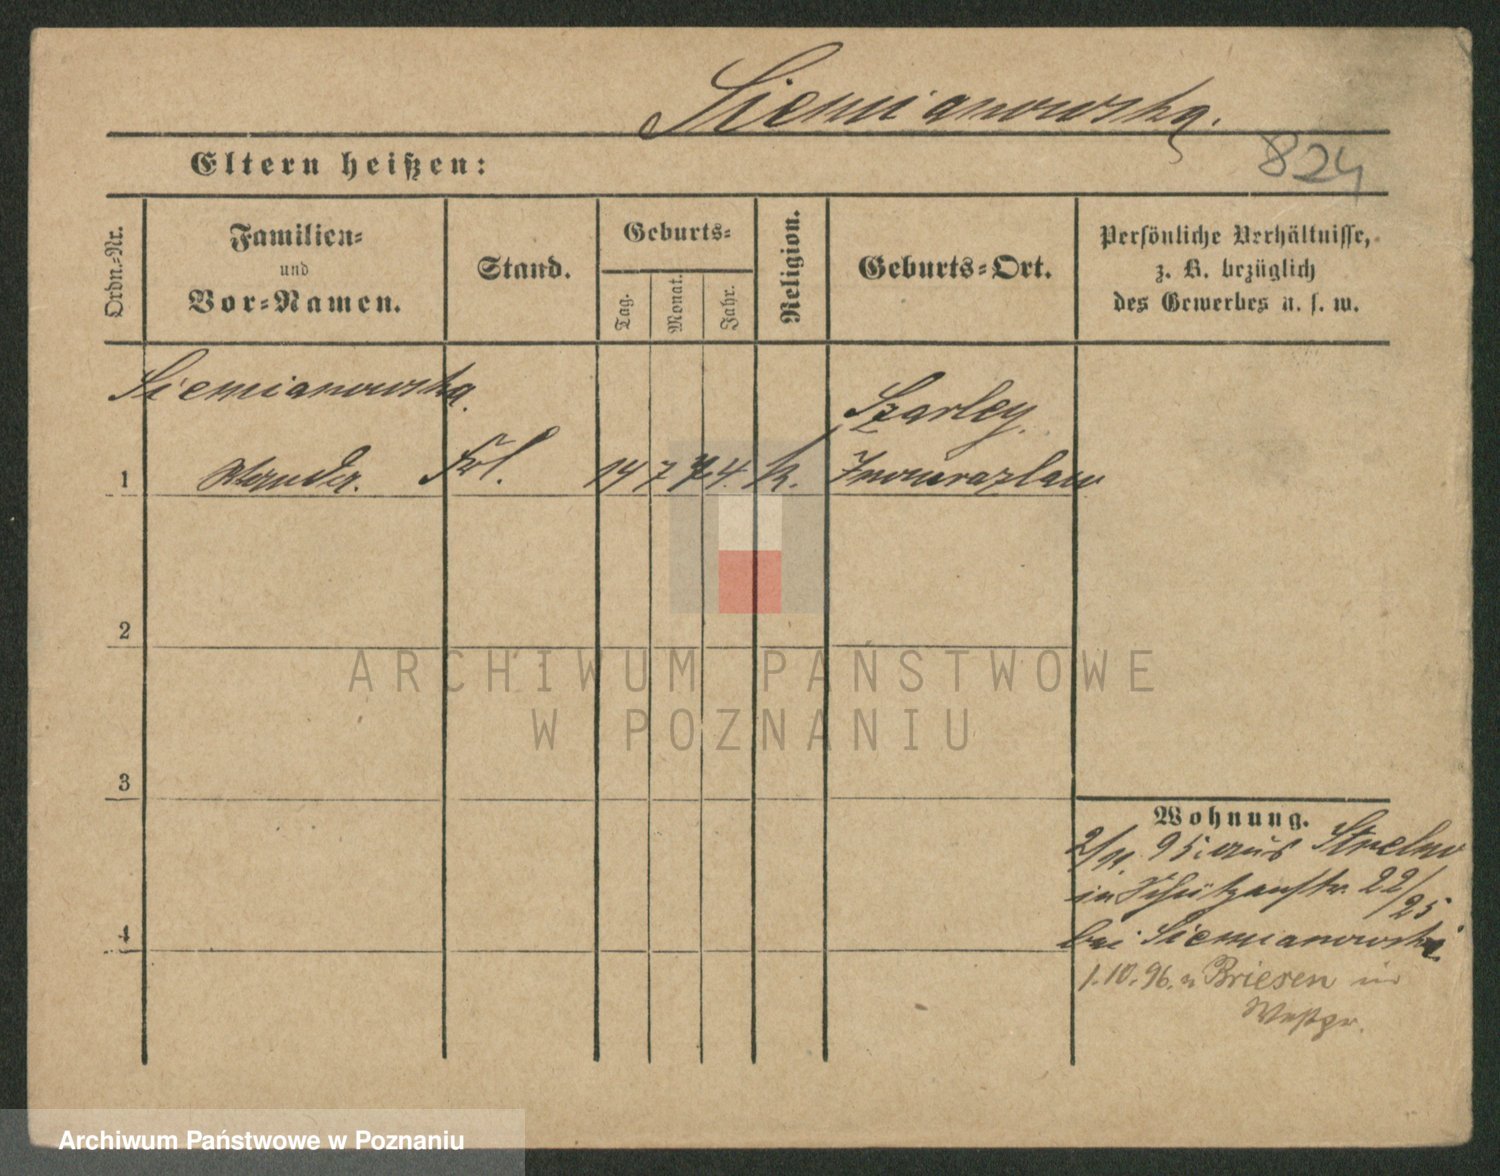 Siemianowska.
Eltern heißen:
824
Ordn.-Nr.
Familien-
und
Vor-Namen.
Stand.
Geburts-
Tag.
Monat.
Jahr.
Religion.
Geburts-Ort.
Persönliche Verhältnisse,
z. B. bezüglich
des Gewerbes u. s. w.
Siemianowska.
Szarley.
1 Frl. 14 7 74. k. Inowrazlaw
2
3
4
Wohnung.
2/11. 95. aus Strelno
in Schützenstr. 22/25
bei Siemianowski
1.10.96. n Briesen in
Westpr.
ARCHIWUM PAŃSTWOWE
W POZNANIU
Archiwum Państwowe w Poznaniu